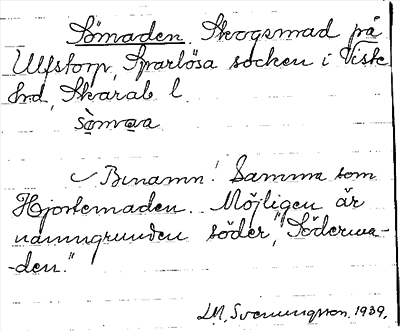 Sömaden. Skogsmad på
Ulfstorp, Sparlösa socken i Viste
hd, Skarab. l.
sòmaa
Binamn! Samma som
Hjortemaden. Möjligen är
namngrunden söder, "Söderma-
-den."
LM. Svenungsson. 1939.